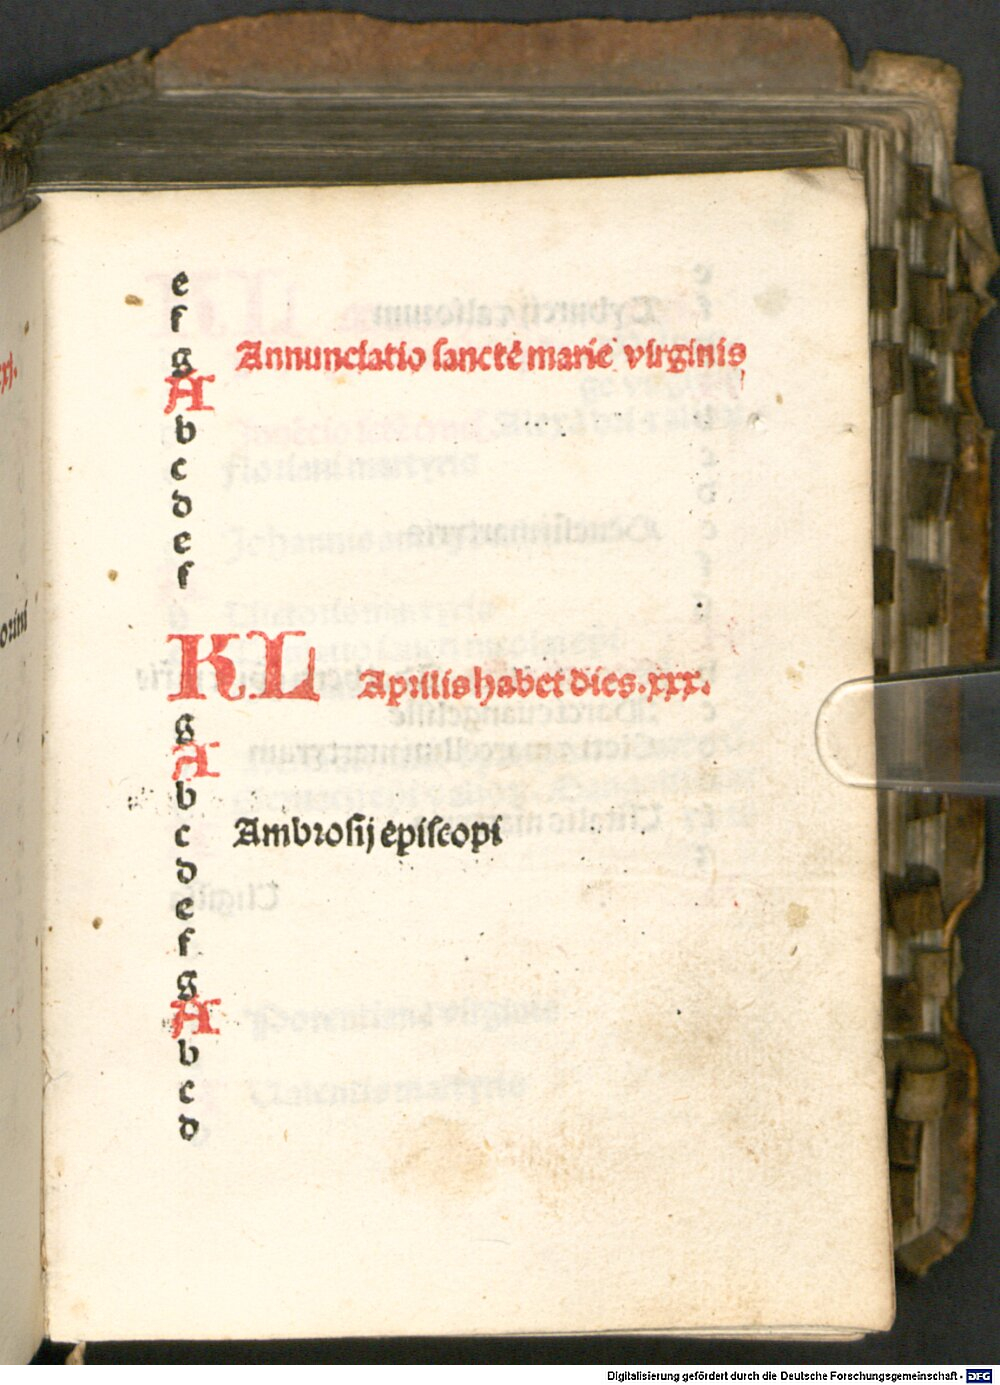 e
f
g Annunciatio sancte marie virginis
A
b
c
d
e
f
KL Aprilis habet dies .xxx.
g
A
b
c Ambrosij episcopi
d
e
f
g
A
b
c
d
Digitalisierung gefördert durch die Deutsche Forschungsgemeinschaft - DFG